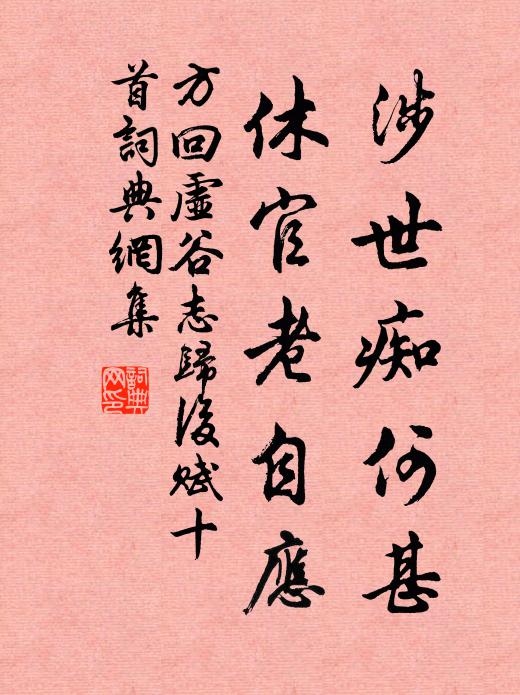 涉世痴何甚
休官老自應
方回虛谷志歸後賦十
首詞典網集
詞典
网印